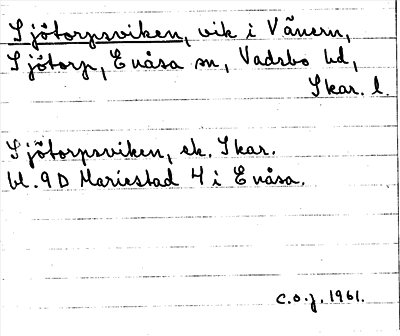 Sjötorpsviken, vik i Vänern,
Sjötorp, Enåsa sn, Vadsbo hd,
Skar. l.
Sjötorpsviken, ek. Skar.
bl. 9D Mariestad 4 i Enåsa.
C.O.J. 1961.